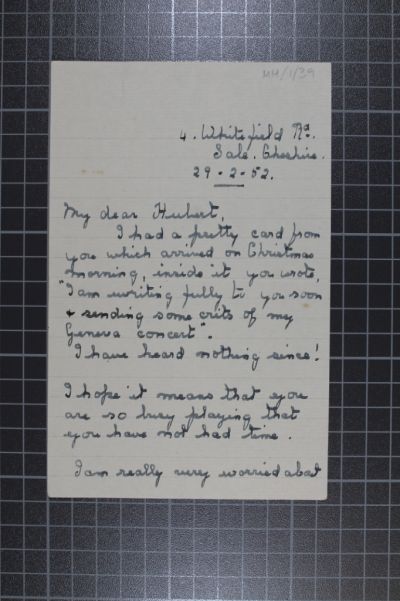 MM/1/39
4. Whitefield Rd.
Sale. Cheshire.
29-2-52.
My dear Hubert,
I had a pretty card from
you which arrived on Christmas
morning, inside it you wrote,
"I am writing fully to you soon
+ sending some crits of my
Geneva concert".
I have heard nothing since!
I hope it means that you
are so busy playing that
you have not had time.
I am really very worried about